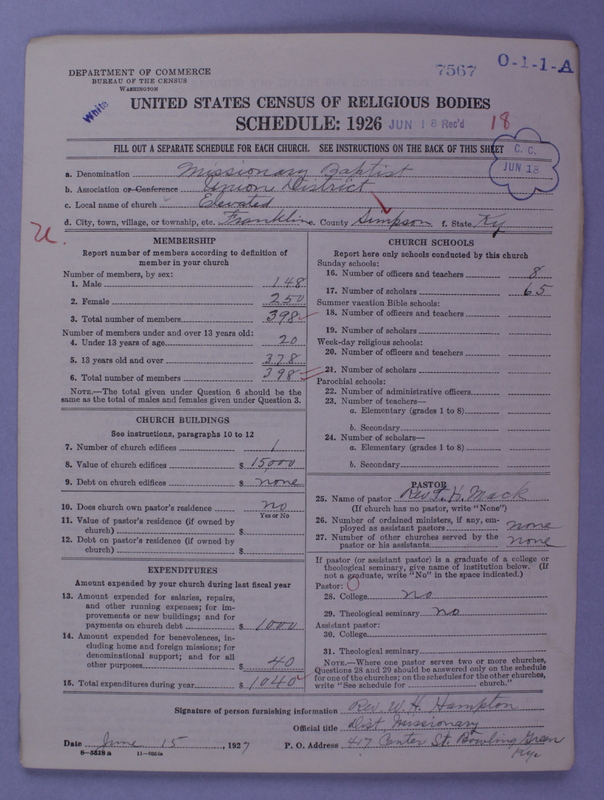 7567
O-1-1-A
DEPARTMENT OF COMMERCE
BUREAU OF THE CENSUS
WASHINGTON
White
UNITED STATES CENSUS OF RELIGIOUS BODIES
SCHEDULE: 1926 JUN 18 Rec'd 18
FILL OUT A SEPARATE SCHEDULE FOR EACH CHURCH. SEE INSTRUCTIONS ON THE BACK OF THIS SHEET
C. C.
JUN 18
a. Denomination Missionary Baptist
b. Association or Conference Union District
c. Local name of church Elevated
d. City, town, village, or township, etc. Franklin e. County Simpson f. State Ky
U.
MEMBERSHIP
Report number of members according to definition of
member in your church
Number of members, by sex:
1. Male 148
2. Female 250
3. Total number of members 398
Number of members under and over 13 years old:
4. Under 13 years of age 20
5. 13 years old and over 378
6. Total number of members 398
NOTE.—The total given under Question 6 should be
same as the total of males and females given under Question 3.
CHURCH BUILDINGS
See instructions, paragraphs 10 to 12
7. Number of church edifices 1
8. Value of church edifices $ 15,000
9. Debt on church edifices $ none
10. Does church own pastor's residence no
Yes or No
11. Value of pastor's residence (if owned by
church) $
12. Debt on pastor's residence (if owned by
church) $
EXPENDITURES
Amount expended by your church during last fiscal year
13. Amount expended for salaries, repairs,
and other running expenses; for im-
provements or new buildings; and for
payments on church debt $ 1000
14. Amount expended for benevolences, in-
cluding home and foreign missions; for
denominational support; and for all
other purposes $ 40
15. Total expenditures during year $ 1040
CHURCH SCHOOLS
Report here only schools conducted by this church
Sunday schools:
16. Number of officers and teachers 8
17. Number of scholars 65
Summer vacation Bible schools:
18. Number of officers and teachers
19. Number of scholars
Week-day religious schools:
20. Number of officers and teachers
21. Number of scholars
Parochial schools:
22. Number of administrative officers
23. Number of teachers—
a. Elementary (grades 1 to 8)
b. Secondary
24. Number of scholars—
a. Elementary (grades 1 to 8)
b. Secondary
PASTOR
25. Name of pastor Rev. F. H. Mack
(If church has no pastor, write "None")
26. Number of ordained ministers, if any, em-
ployed as assistant pastors none
27. Number of other churches served by the
pastor or his assistants none
If pastor (or assistant pastor) is a graduate of a college or
theological seminary, give name of institution below. (If
not a graduate, write "No" in the space indicated.)
Pastor: 0
28. College no
29. Theological seminary no
Assistant pastor:
30. College
31. Theological seminary
NOTE.—Where one pastor serves two or more churches,
Questions 28 and 29 should be answered only on the schedule
for one of the churches; on the schedules for the other churches,
write "See schedule for church."
Signature of person furnishing information Rev. W. H. Hampton
Official title Dist. Missionary
Date June 15, 1927 P. O. Address 417 Center St. Bowling Green
Kye
8—5518a 11—